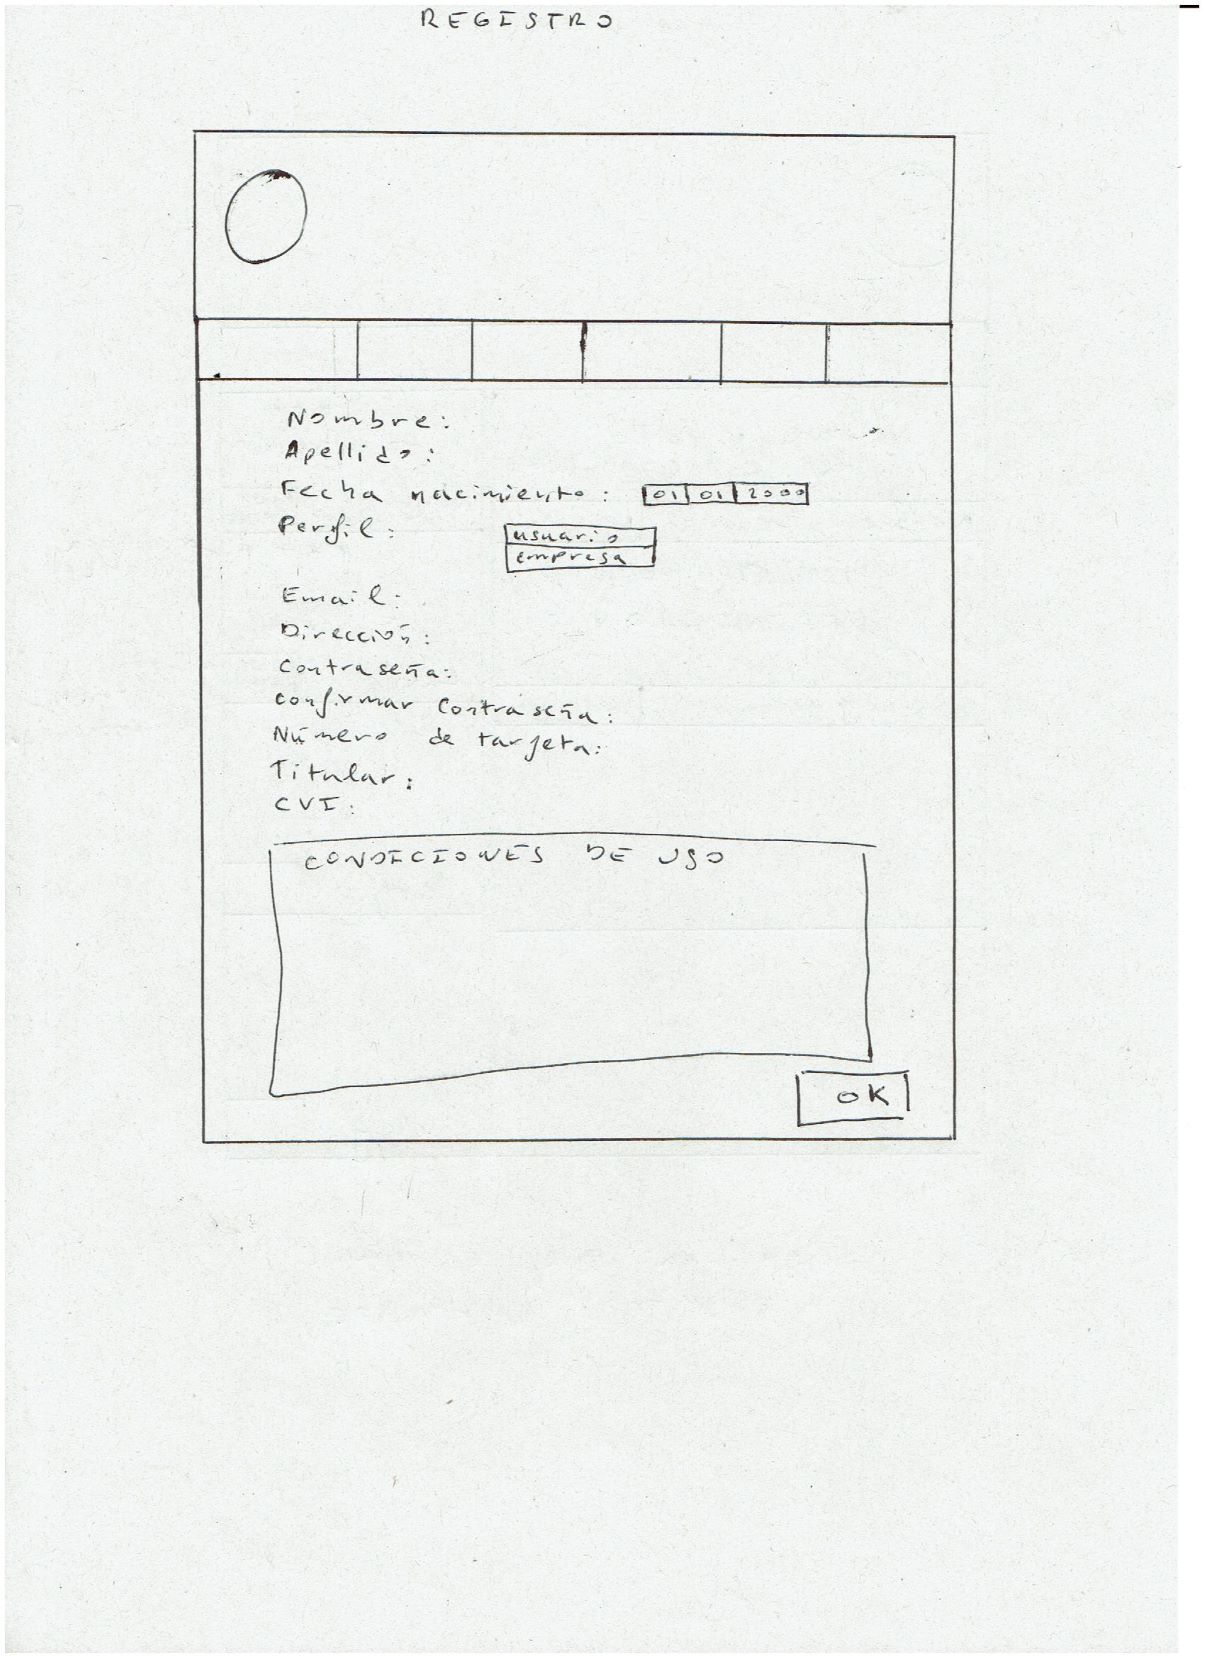 REGISTRO
Nombre:
Apellido:
Fecha nacimiento: 01 01 2000
Perfil: usuario
empresa
Email:
Dirección:
Contraseña:
Confirmar Contraseña:
Número de tarjeta:
Titular:
CVI:
CONDICIONES DE USO
OK